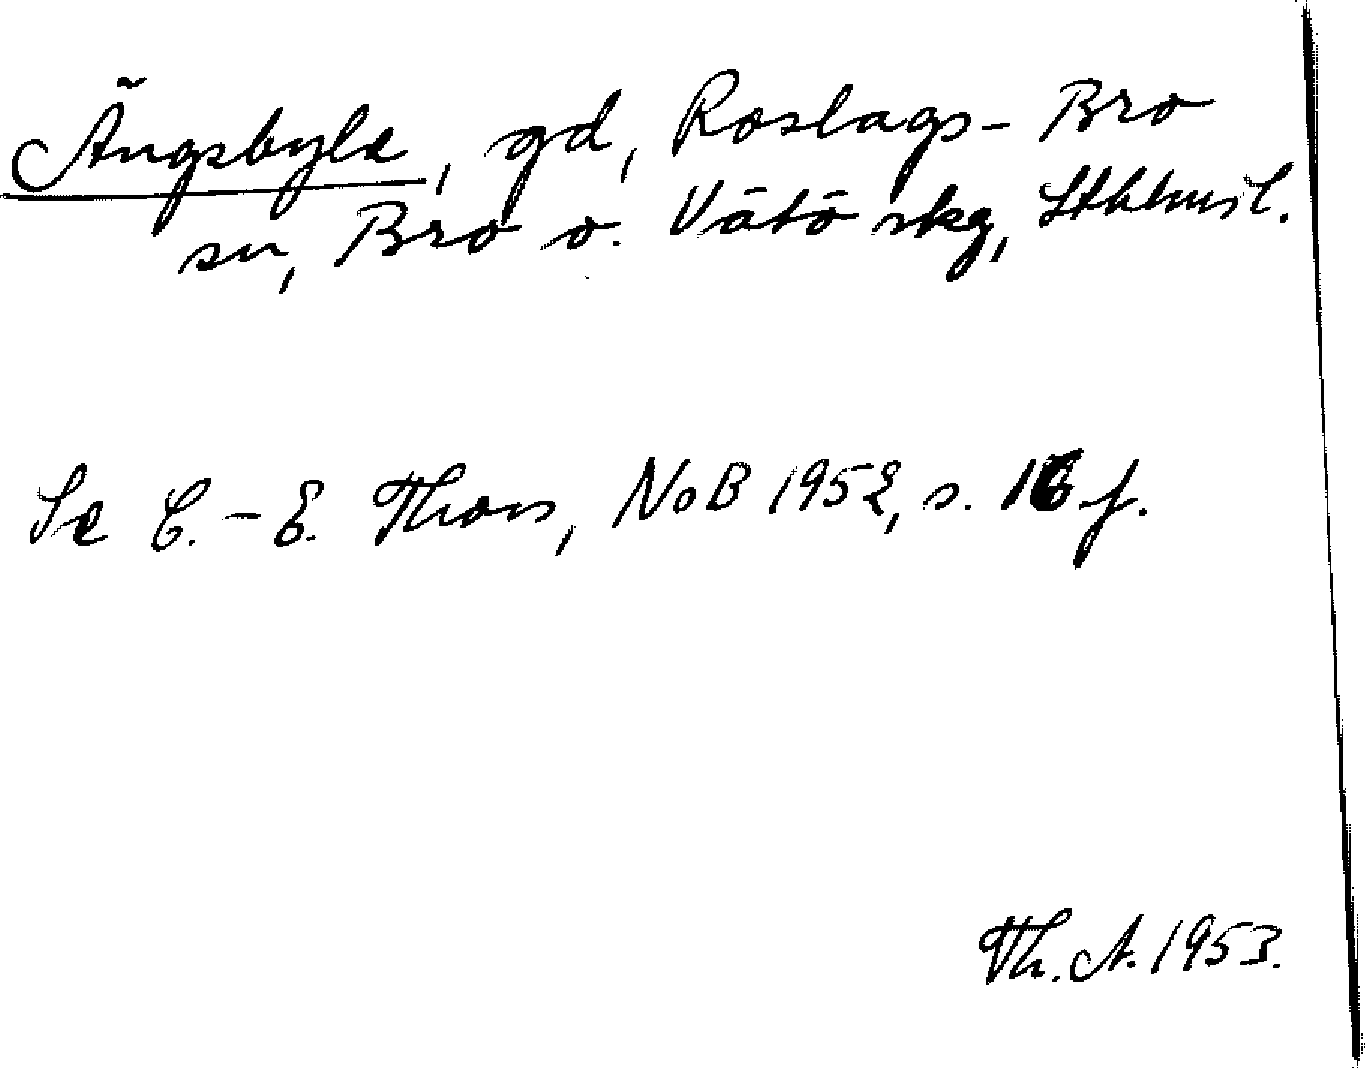 Ängsbyle, gd, Roslags-Bro
sn, Bro o. Vätö skg, Sthlms l.
Se C.-E. Thors, NoB 1952, s. 16 f.
Th. A. 1953.